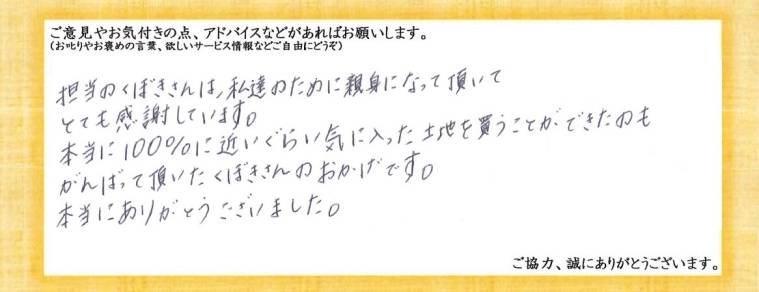 ご意見やお気付きの点、アドバイスなどがあればお願いします。
(お叱りやお褒めの言葉、欲しいサービス情報などご自由にどうぞ)
担当のくぼきさんは、私達のために親身になって頂いて
とても感謝しています。
本当に100%に近いぐらい気に入った土地を買うことができたのも
がんばって頂いたくぼきさんのおかげです。
本当にありがとうございました。
ご協力、誠にありがとうございます。